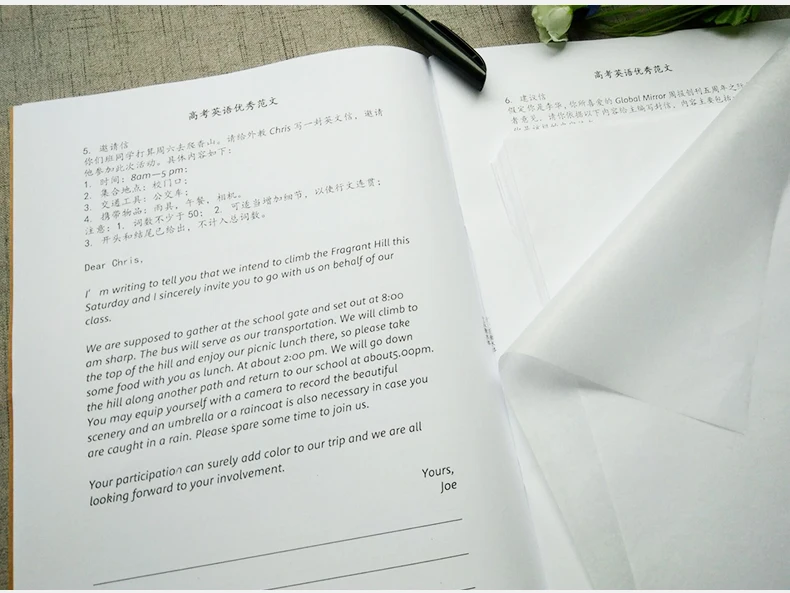 高考英语优秀范文
5. 邀请信
你们班同学打算周六去爬香山。请给外教 Chris 写一封英文信，邀请
他参加此次活动。具体内容如下：
1. 时间：8am—5 pm；
2. 集合地点：校门口；
3. 交通工具：公交车；
4. 携带物品：雨具，午餐，相机。
注意：1. 词数不少于 50； 2. 可适当增加细节，以使行文连贯；
3. 开头和结尾已给出，不计入总词数。
Dear Chris,
I' m writing to tell you that we intend to climb the Fragrant Hill this
Saturday and I sincerely invite you to go with us on behalf of our
class.
We are supposed to gather at the school gate and set out at 8:00
am sharp. The bus will serve as our transportation. We will climb to
the top of the hill and enjoy our picnic lunch there, so please take
some food with you as lunch. At about 2:00 pm. We will go down
the hill along another path and return to our school at about5.00pm.
You may equip yourself with a camera to record the beautiful
scenery and an umbrella or a raincoat is also necessary in case you
are caught in a rain. Please spare some time to join us.
Your participation can surely add color to our trip and we are all
looking forward to your involvement.
Yours,
Joe
高考英语优秀范文
6. 建议信
假定你是李华，你所喜爱的 Global Mirror 周报创刊五周年之际
者意见。请你依据以下内容给主编写封信，内容主要包括